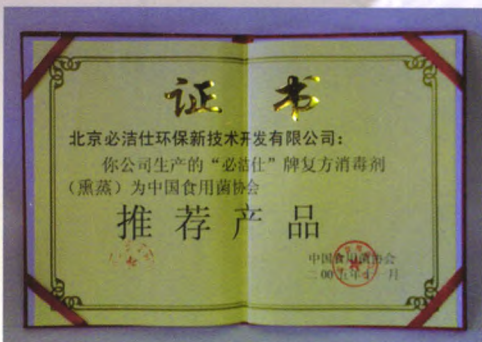 证书
北京必洁仕环保新技术开发有限公司：
你公司生产的“必洁仕”牌复方消毒剂
（熏蒸）为中国食用菌协会
推荐产品
中国食用菌协会
二00五年十一月